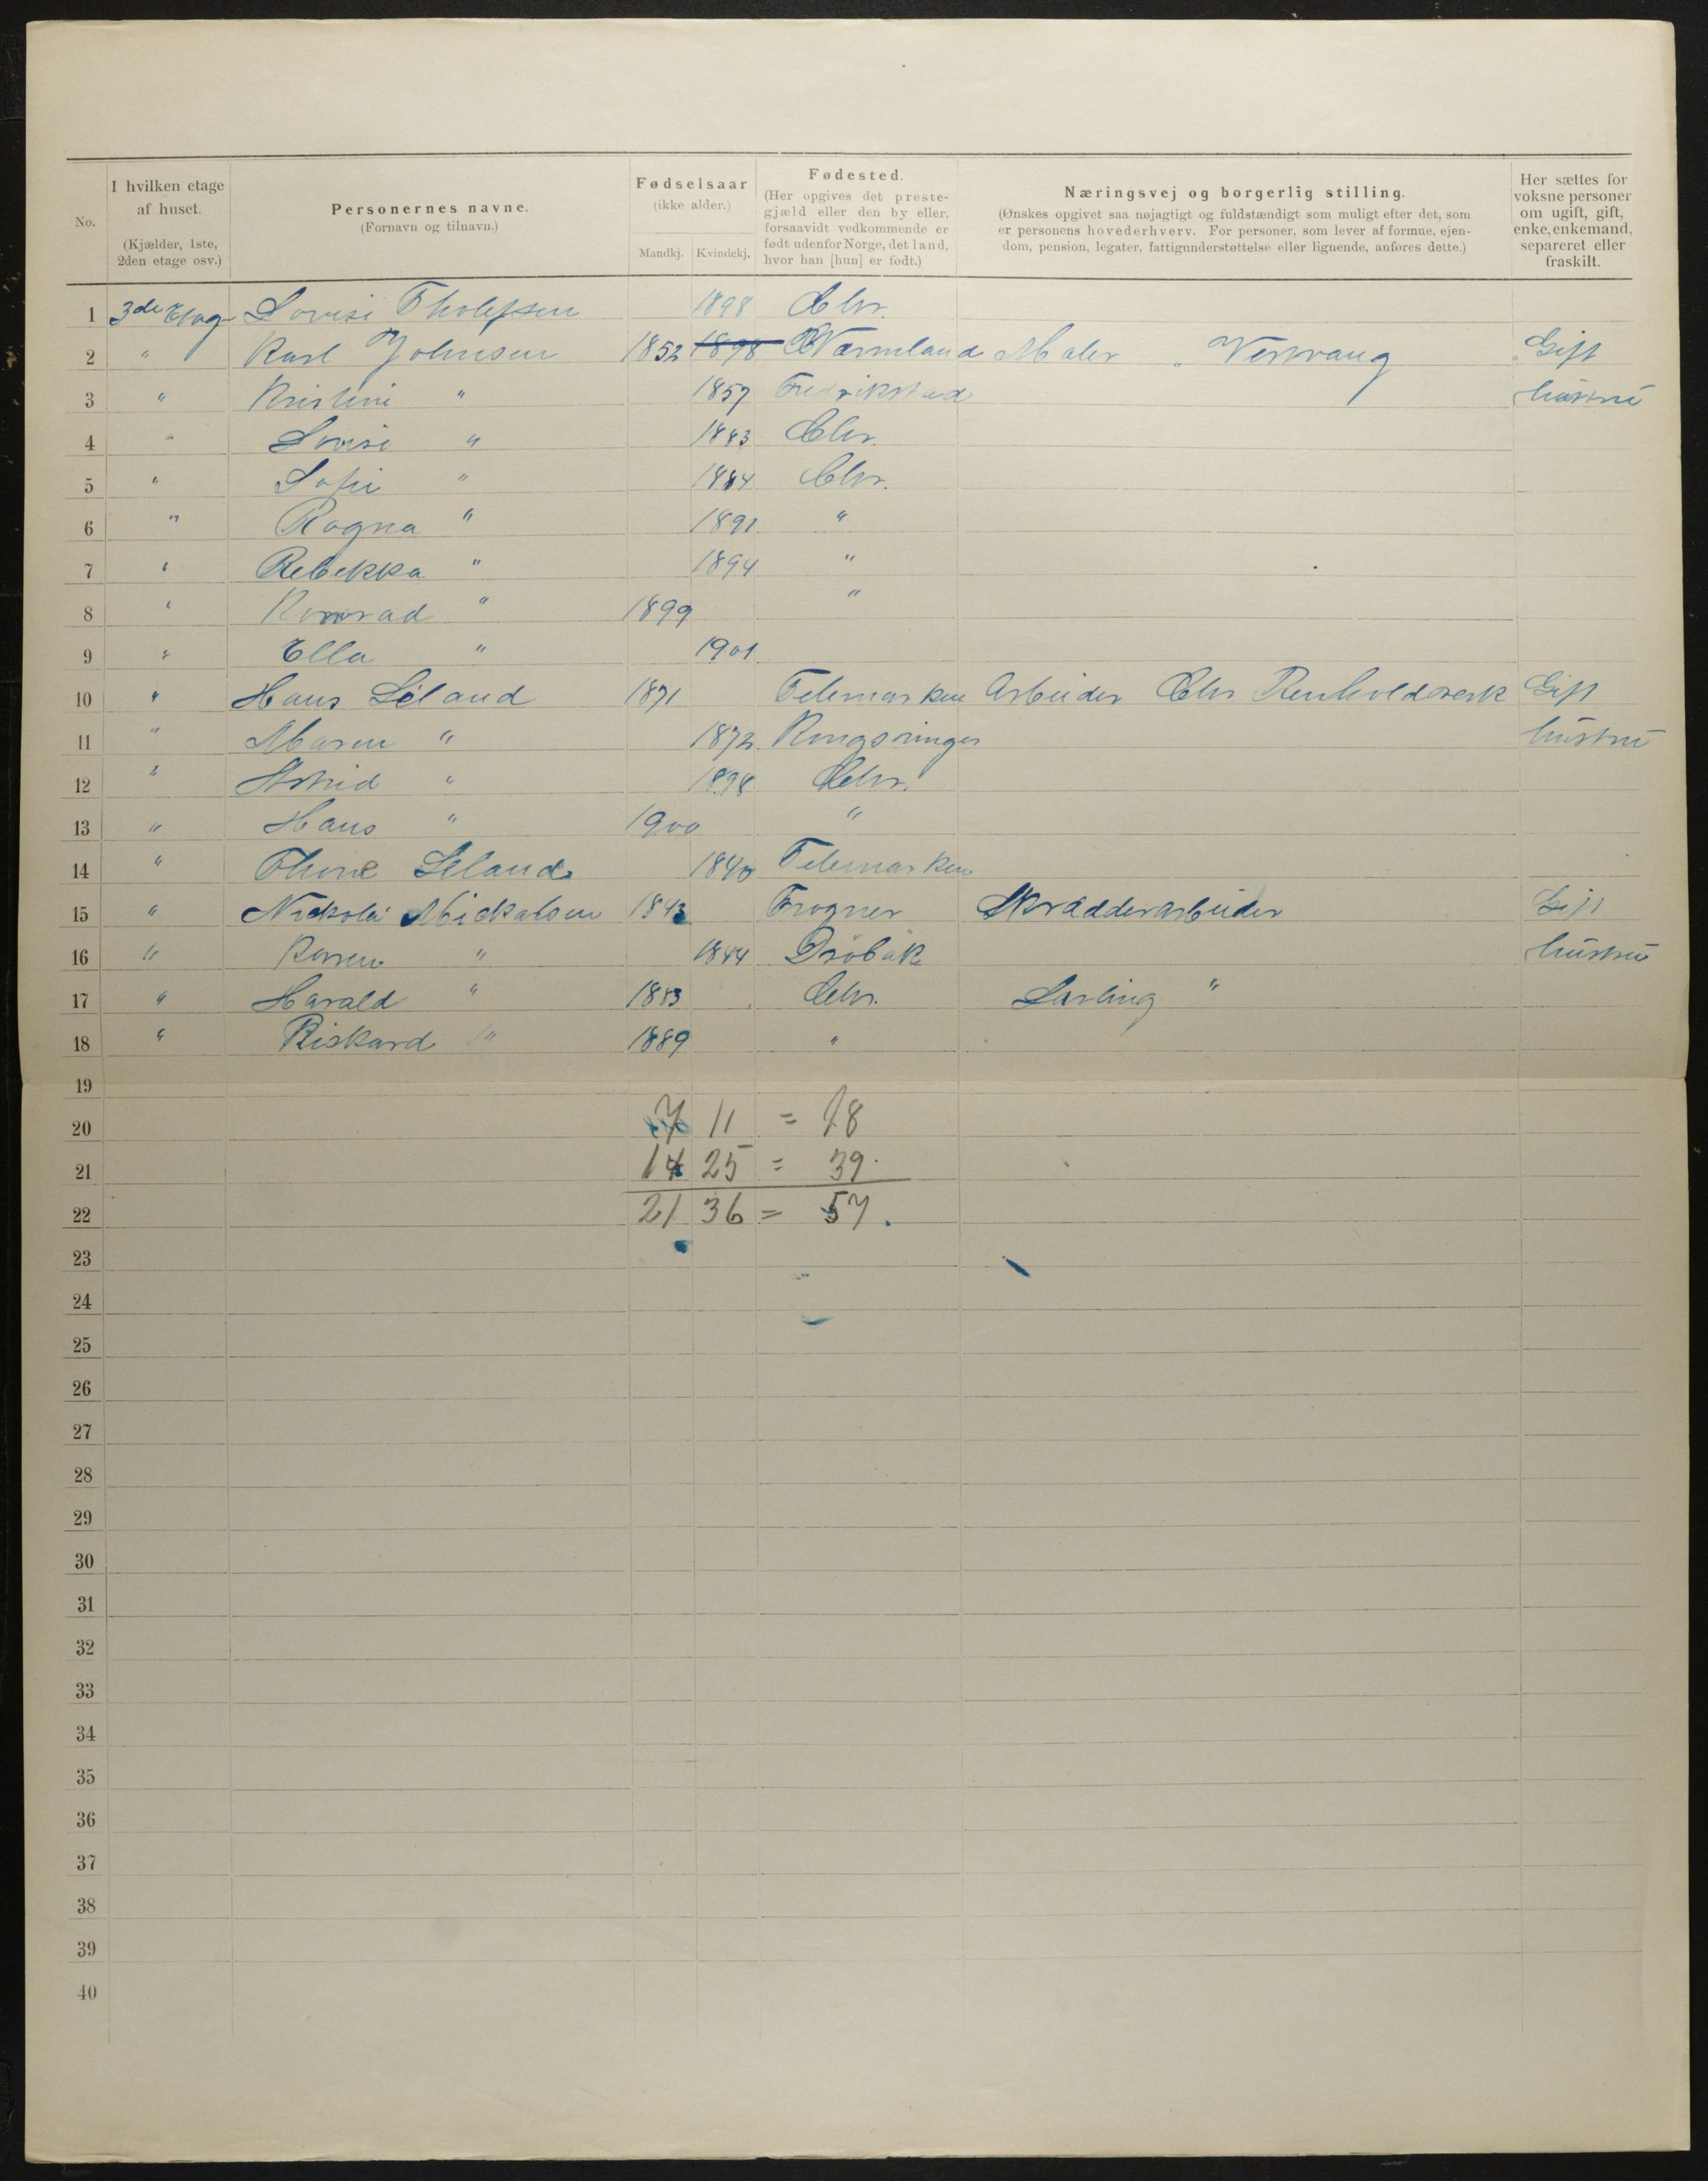 No.
I hvilken etage
af huset.
(Kjælder, 1ste,
2den etage osv.)
Personernes navne.
(Fornavn og tilnavn.)
Fødselsaar
(ikke alder.)
Mandkj. Kvindekj.
Fødested.
(Her opgives det preste-
gjæld eller den by eller,
forsaavidt vedkommende er
født udenfor Norge, det land,
hvor han [hun] er født.)
Næringsvej og borgerlig stilling.
(Ønskes opgivet saa nøjagtigt og fuldstændigt som muligt efter det, som
er personens hovederhverv. For personer, som lever af formue, ejen-
dom, pension, legater, fattigunderstøttelse eller lignende, anføres dette.)
Her sættes for
voksne personer
om ugift, gift,
enke, enkemand,
separeret eller
fraskilt.
1 3de Etag Lovise 1898 Chr.
2 " Karl Johnsen 1852 1898 Værmland Maler " Gift
3 " Kristine " 1857 Fredrikstad hustru
4 " Lovise " 1883 Chr.
5 " Sofie " 1884 Chr.
6 " Ragna " 1891 "
7 " Rebekka " 1894 "
8 " Konrad " 1899 "
9 " Ella " 1901
10 " Hans Leland 1871 Telemarken Arbeider Chr Renholdsverk Gift
11 " Maren " 1872 hustru
12 " Astrid " 1898 Chr.
13 " Hans " 1900 "
14 " Thone Leland 1840 Telemarken
15 " Nickolai Mickalsen 1843 Frogner Skrædderarbeider Gift
16 " Karen " 1844 Drøbak hustru
17 " Harald " 1883 Chr. Lærling "
18 " Riskard " 1889 "
19
20 7 11 = 18
21 14 25 = 39
22 21 36 = 57.
23
24
25
26
27
28
29
30
31
32
33
34
35
36
37
38
39
40